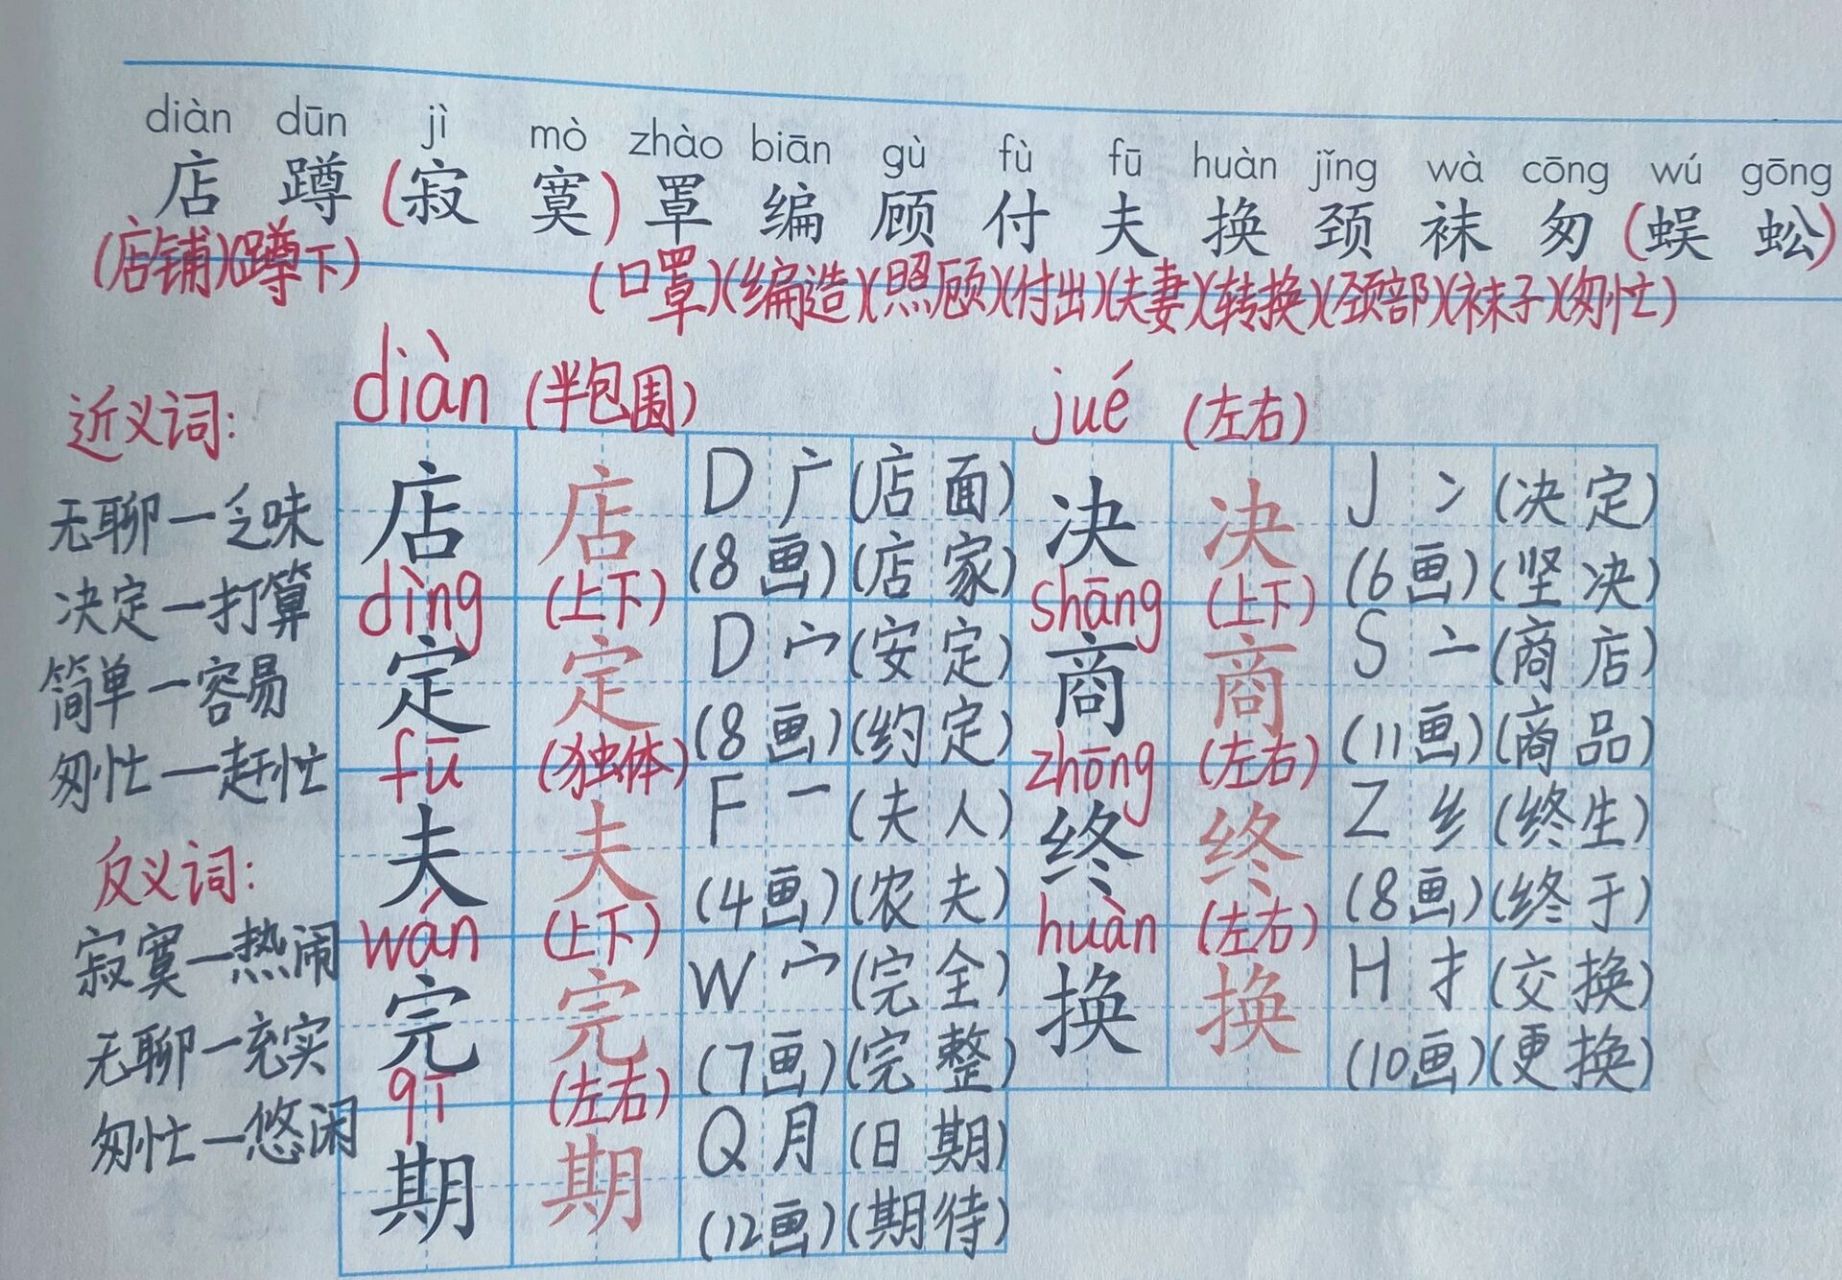 diàn dūn jì mò zhào biān gù fù fū huàn jǐng wà cōng wú gōng
店 蹲 (寂 寞) 罩 编 顾 付 夫 换 颈 袜 匆 (蜈 蚣)
(店铺)(蹲下) (口罩)(编造)(照顾)(付出)(夫妻)(转换)(颈部)(袜子)(匆忙)
近义词:
无聊一乏味
决定一打算
简单一容易
匆忙一赶忙
反义词:
寂寞一热闹
无聊一充实
匆忙一悠闲
diàn (半包围)
店 店 D 广 (店面)
(8画)(店家)
dìng (上下)
定 定 D 宀 (安定)
(8画)(约定)
fū (独体)
夫 夫 F 一 (夫人)
(4画)(农夫)
wán (上下)
完 完 W 宀 (完全)
(7画)(完整)
qī (左右)
期 期 Q 月 (日期)
(12画)(期待)
jué (左右)
决 决 J 冫 (决定)
(6画)(坚决)
shāng (上下)
商 商 S 亠 (商店)
(11画)(商品)
zhōng (左右)
终 终 Z 纟 (终生)
(8画)(终于)
huàn (左右)
换 换 H 扌 (交换)
(10画)(更换)